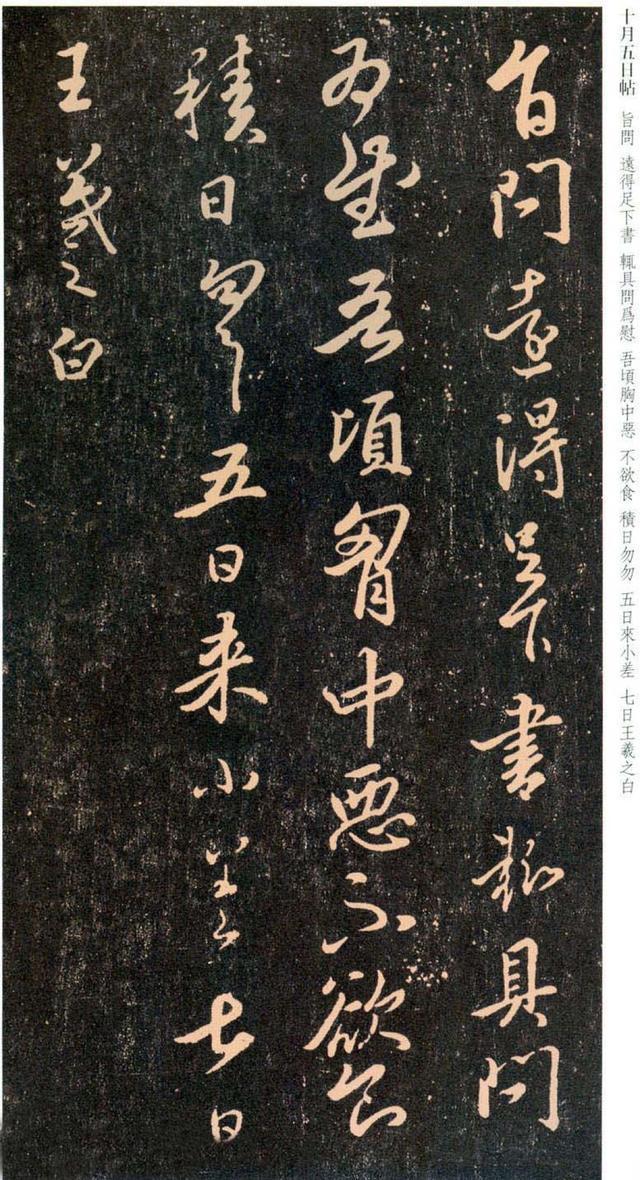 十月五日帖 旨問 遠得足下書 輒具問爲慰 吾頃胸中惡 不欲食 積日勿勿 五日來小差 七日王羲之白
旨問遠得足下書輒具問
為慰吾頃胷中惡不欲食
積日勿勿五日来小差七日
王羲之白